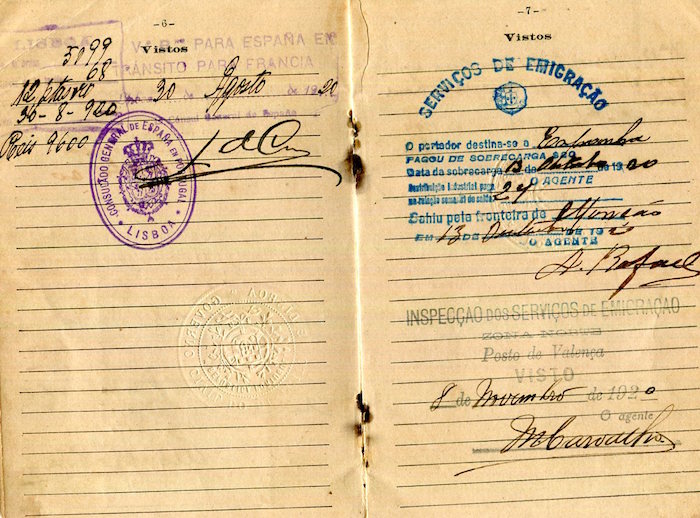 -6-
Vistos
LISBOA
VALE PARA ESPAÑA EN
TRÁNSITO PARA FRANCIA
5099
68
12 ptas
30 Agosto de 1920
30-8-920
Reis 9600
CONSULADO GENERAL DE ESPAÑA EN PORTUGAL
LISBOA
-7-
Vistos
SERVIÇOS DE EMIGRAÇÃO
O portador destina-se a Espanha
PAGOU DE SOBRECARGA $
Data da sobrecarga 13 de Outubro de 1920
O AGENTE
27
Sahiu pela fronteira de Monsão
EM 13 DE Outubro DE 1920
O AGENTE
A. Rafael
INSPECÇÃO DOS SERVIÇOS DE EMIGRAÇÃO
ZONA NORTE
Posto de Valença
VISTO
8 de Novembro de 1920
O agente
M Carvalho